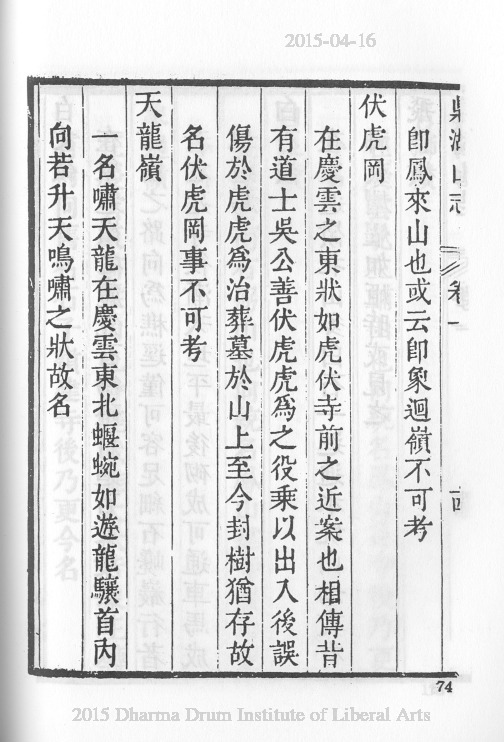 2015-04-16
鼎湖山志 卷一 十四
即鳳來山也或云即象迴嶺不可考
伏虎岡
在慶雲之東狀如虎伏寺前之近案也相傳昔
有道士吳公善伏虎虎爲之役乘以出入後誤
傷於虎虎爲治葬墓於山上至今封樹猶存故
名伏虎岡事不可考
天龍嶺
一名嘯天龍在慶雲東北蜿蜒如遊龍驤首内
向若升天鳴嘯之狀故名
74
2015 Dharma Drum Institute of Liberal Arts